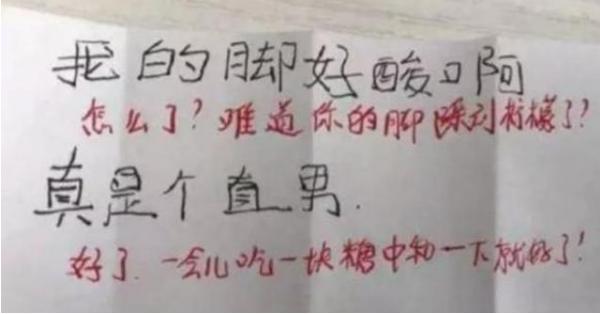 我的脚好酸啊
怎么了?难道你的脚踩到柠檬了?
真是个直男.
好了.一会儿吃一块糖中和一下就好了!